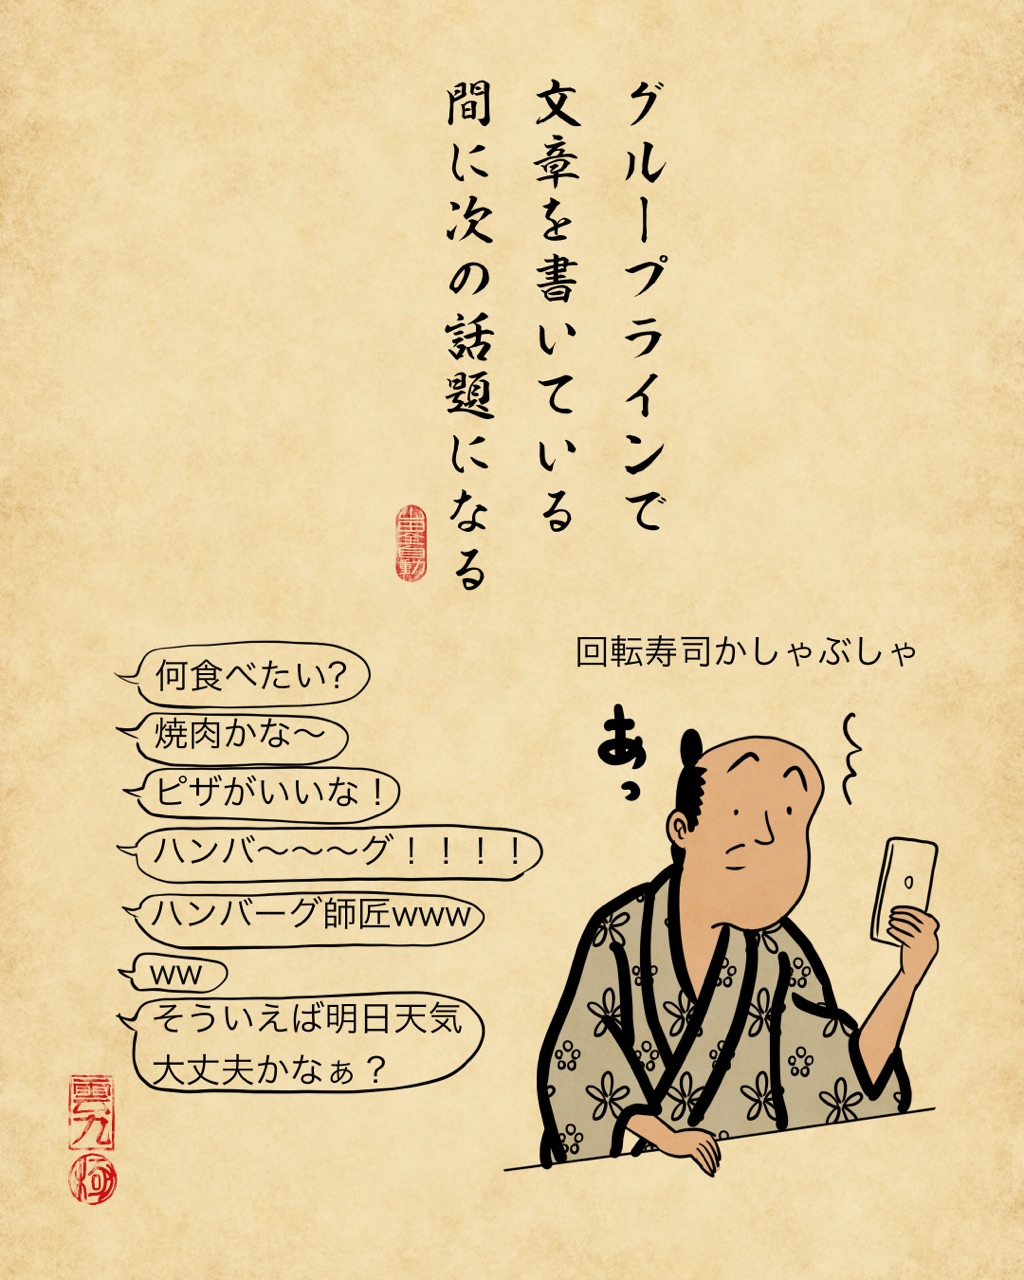 グループラインで
文章を書いている
間に次の話題になる
何食べたい?
焼肉かな〜
ピザがいいな！
ハンバ〜〜〜グ！！！！
ハンバーグ師匠www
ww
そういえば明日天気
大丈夫かなぁ？
回転寿司かしゃぶしゃ
あっ